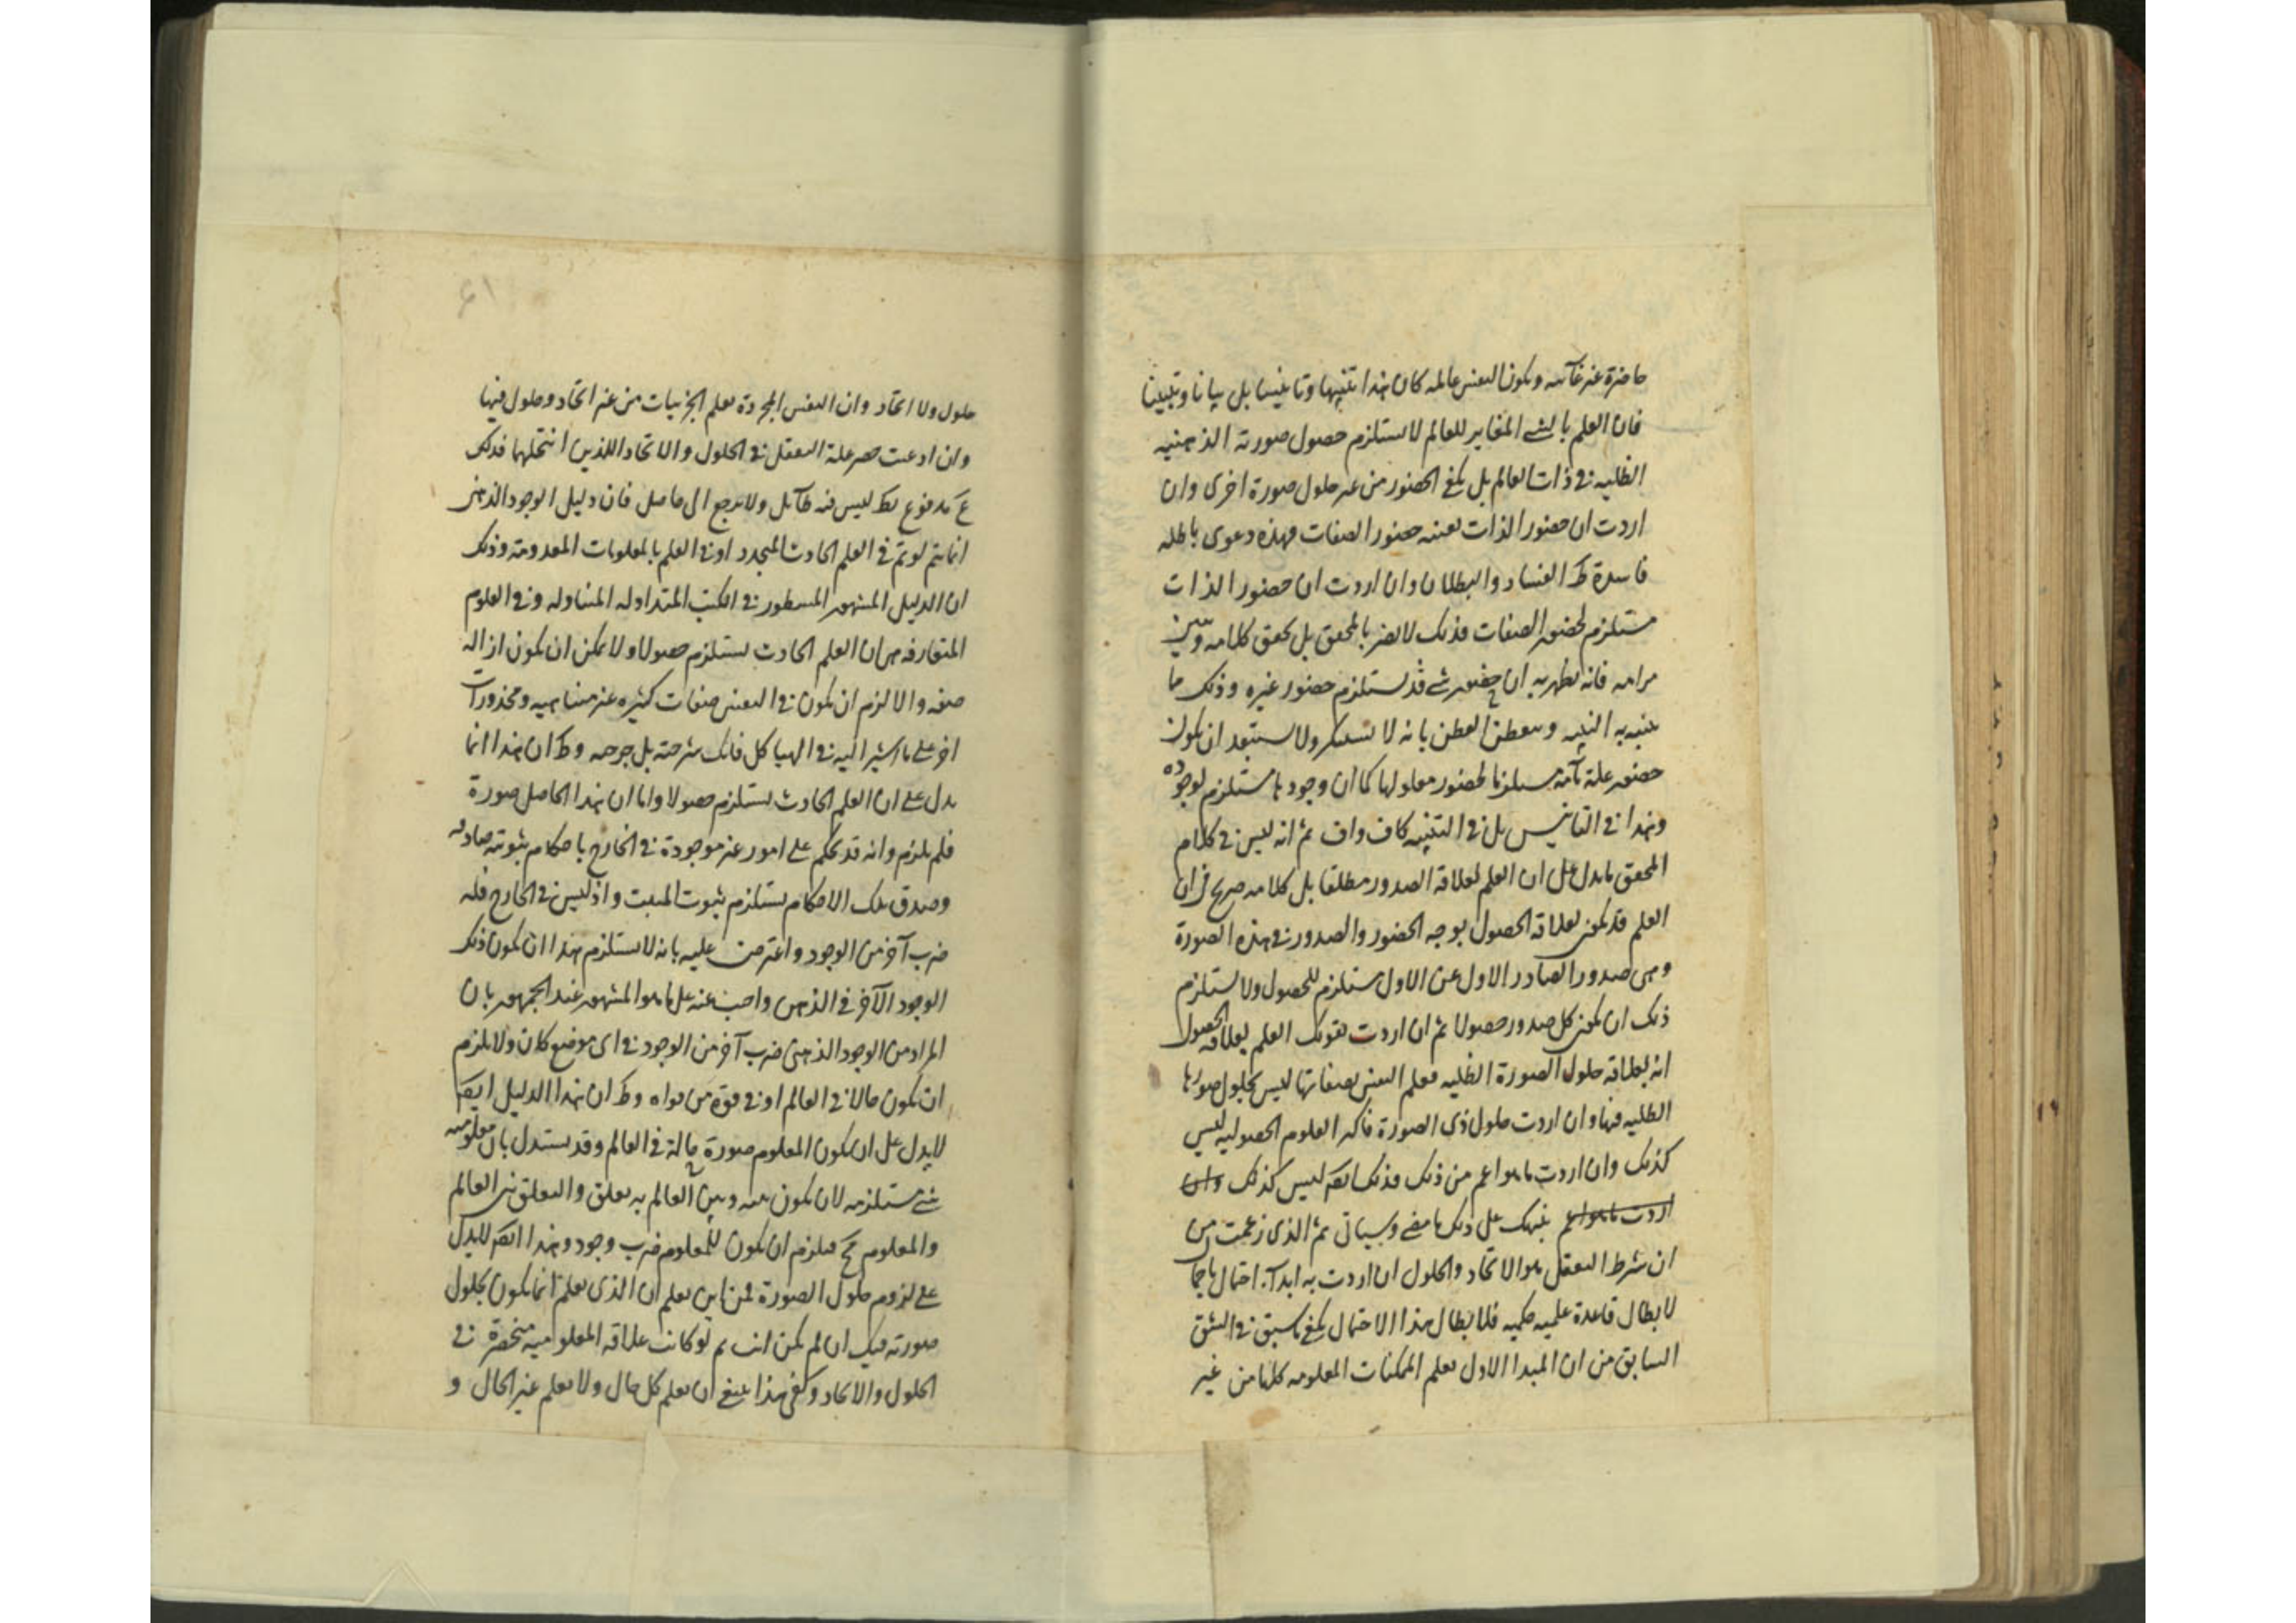 حاضرة غير غائبه ويكون النفس عالمه كان هذا تنبيها وتانيسا بل بيانا وتبيينا
فان العلم بالشے المغاير للعالم لا يستلزم حصول صورته الذهنيه
الظليه فى ذات العالم بل يكفى الحضور من غير حلول صورة اخرى وان
اردت ان حضور الذات بعينه حضور الصفات فهذه دعوى باطله
فاسدة ظ الفساد والبطلان وان اردت ان حضور الذات
مستلزم لحضور الصفات فذلك لا يضر بالمحقق بل يحقق كلامه ويبين
مرامه فانه يظهر به ان حضور شے قد يستلزم حضور غيره وذلك ما
ينبه به النبيه ويتفطن الفطن بانه لا يستنكر ولا يستبعد ان يكون
حضور علة تامة مستلزما لحضور معلولها كما ان وجودها مستلزم لوجوده
وهذا فى التانيس بل فى التنبيه كاف واف ثم انه ليس فى كلام
المحقق ما يدل على ان العلم لعلاقة الصدور مطلقا بل كلامه صريح فى ان
العلم قد يكون لعلاقة الحصول بوجه الحضور والصدور فى هذه الصورة
وهى صدور الصادر الاول عن الاول مستلزم للحصول ولا يستلزم
ذلك ان يكون كل صدور حصولا ثم ان اردت بقولك العلم بعلاقة الحصول
انه بعلاقة حلول الصورة الظليه فعلم النفس بصفاتها ليس بحلول صورها
الظليه فيها وان اردت حلول ذى الصورة فاكثر العلوم الحصوليه ليس
كذلك وان اردت ما هو اعم من ذلك فذلك ايضا ليس كذلك وان
اردت ما هو اعم ينبهك على ذلك ما مضى وسياتى ثم الذى زعمت من
ان شرط التعقل هو الاتحاد والحلول ان اردت به ابدآء احتمال ما
لابطال قاعدة علميه حكميه فلابطال هذا الاحتمال يكفى ما سبق فى الشق
السابق من ان المبدا الاول يعلم الممكنات المعلومه كلها من غير
٤١
حلول ولا اتحاد وان النفس المجردة تعلم الجزئيات من غير اتحاد وحلول فيها
وان ادعيت حصر علة التعقل فى الحلول والاتحاد اللذين انتحلهما فذلك
مدفوع ليس فيه طآئل ولا يرجع الى حاصل فان دليل الوجود الذهنى
انما يتم لو تم فى العلم الحادث المتجدد او فى العلم بالمعلومات المعدومة وذلك
ان الدليل المشهور المسطور فى الكتب المتداوله المتناوله وفى العلوم
المتعارفه هو ان العلم الحادث يستلزم حصولا ولا يمكن ان يكون ازاله
صفه والا لزم ان يكون فى النفس صفات كثيره غير متناهيه ومحذورات
اخر على ما اشير اليه فى الهياكل فانك شرحته بل جرحته وظ ان هذا انما
يدل على ان العلم الحادث يستلزم حصولا واما ان هذا الحاصل صورة
فلم يلزم وانه قد يحكم على امور غير موجودة فى الخارج باحكام ثبوتيه صادقه
وصدق تلك الاحكام يستلزم ثبوت المثبت واذ ليس فى الخارج فله
ضرب آخر من الوجود واعترضت عليه بانه لا يستلزم هذا ان يكون ذلك
الوجود الآخر فى الذهن واجيب عنه على ما هو المشهور عند الجمهور بان
المراد من الوجود الذهنى ضرب آخر من الوجود فى اى موضع كان ولا يلزم
ان يكون حالا فى العالم او فى قوة من قواه وظ ان هذا الدليل ايضا
لا يدل على ان يكون المعلوم صورة حالة فى العالم وقد يستدل بان معلوميه
شے مستلزمه لان يكون بينه وبين العالم به تعلق والتعلق بين العالم
والمعلوم مح فيلزم ان يكون للمعلوم ضرب وجود وهذا ايضا لا يدل
على لزوم حلول الصورة فمن اين يعلم ان الذى يعلم انما يكون بحلول
صورته فيك ان لم يكن انت ثم لو كانت علاقه المعلوميه منحصرة فى
الحلول والاتحاد وكفى هذا ينبغى ان يعلم كل حال ولا يعلم غير الحال و